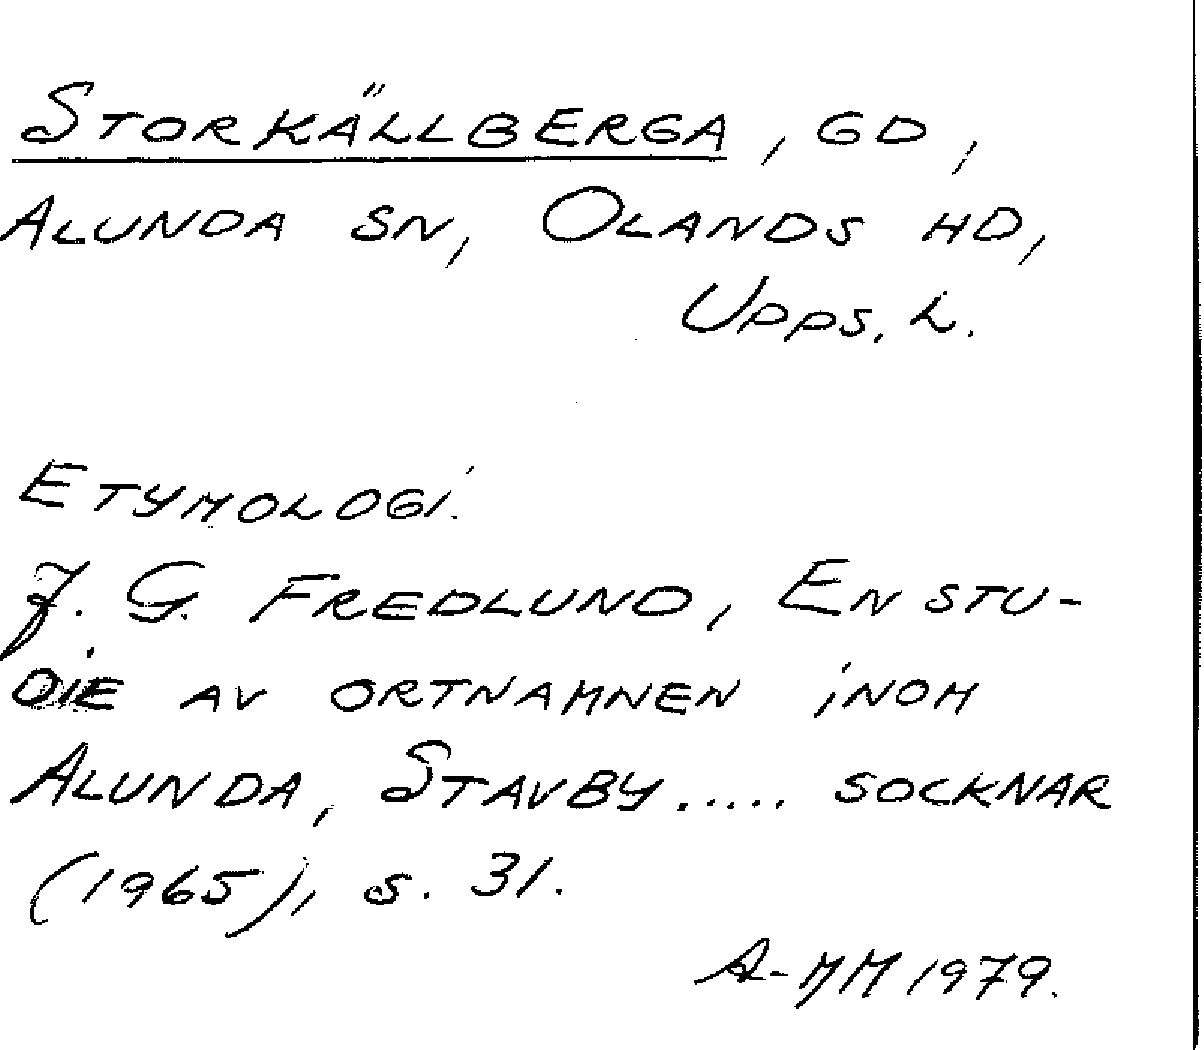 STORKÄLLBERGA, GD,
ALUNDA SN, OLANDS HD,
UPPS. L.
ETYMOLOGI.
J. G. FREDLUND, EN STU-
DIE AV ORTNAMNEN INOM
ALUNDA, STAVBY..... SOCKNAR
(1965), S. 31.
A-MM 1979.